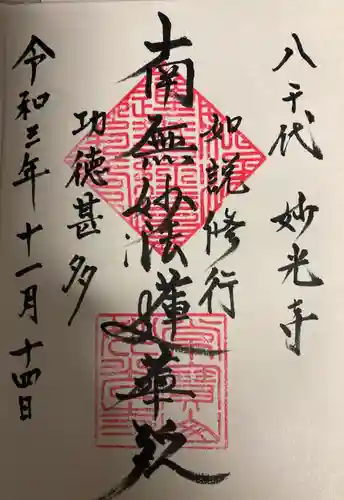 八千代 妙光寺
如説修行
南無妙法蓮華経
功徳甚多
令和三年十一月十四日